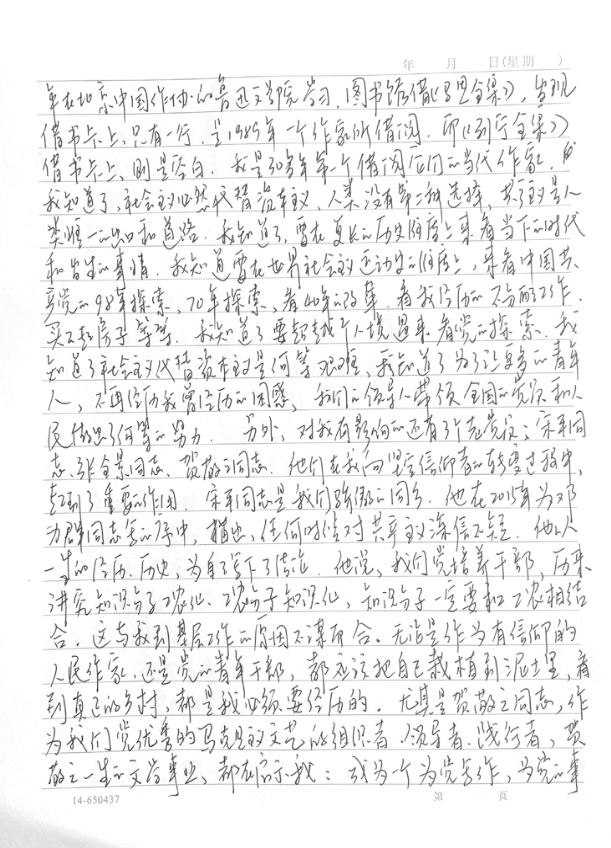 年 月 日(星期 )
年在北京中国作协的鲁迅文学院学习,图书馆借《马恩全集》,发现
借书卡上,只有一行,是1985年一个作家所借阅,而《列宁全集》
借书卡上,则是空白。我是30多年第一个借阅它们的当代作家。
我知道了,社会主义必然代替资本主义,人类没有第二种选择,共产主义是人
类唯一的出口和道路。我知道了,要在更长的历史维度上来看当下的时代
和发生的事情。我知道要在世界社会主义运动史的维度上,来看中国共
产党的98年探索,70年探索,看40年的改革,看我经历的不分配工作、
买不起房子等等。我知道了要超越个人境遇来看党的探索。我
知道了社会主义代替资本主义是何等艰难,我知道了为了让更多的青年
人,不再经历我曾经历的困惑,我们的领导人带领全国的党员和人
民做出了何等的努力。另外,对我有影响的还有3个老党员:宋平同
志、张全景同志、贺敬之同志。他们在我向坚定信仰者的转变过程中,
起到了重要的作用。宋平同志是我们骄傲的同乡。他在2015年为邓
力群同志写的序中,指出,任何时候对共产主义深信不疑。他以人
一生的经历、历史,为自己写下了结论。他说,我们党培养干部,历来
讲究知识分子工农化,工农分子知识化,知识分子一定要和工农相结
合。这与我到基层工作的原因不谋而合。无论是作为有信仰的
人民作家,还是党的青年干部,都应该把自己栽植到泥土里,看
到真正的乡村,都是我必须要经历的。尤其是贺敬之同志,作
为我们党优秀的马克思主义文艺的组织者、领导者、践行者,贺
敬之一生的文学事业,都在启示我:成为一个为党写作,为党的事
14-650437
第 頁